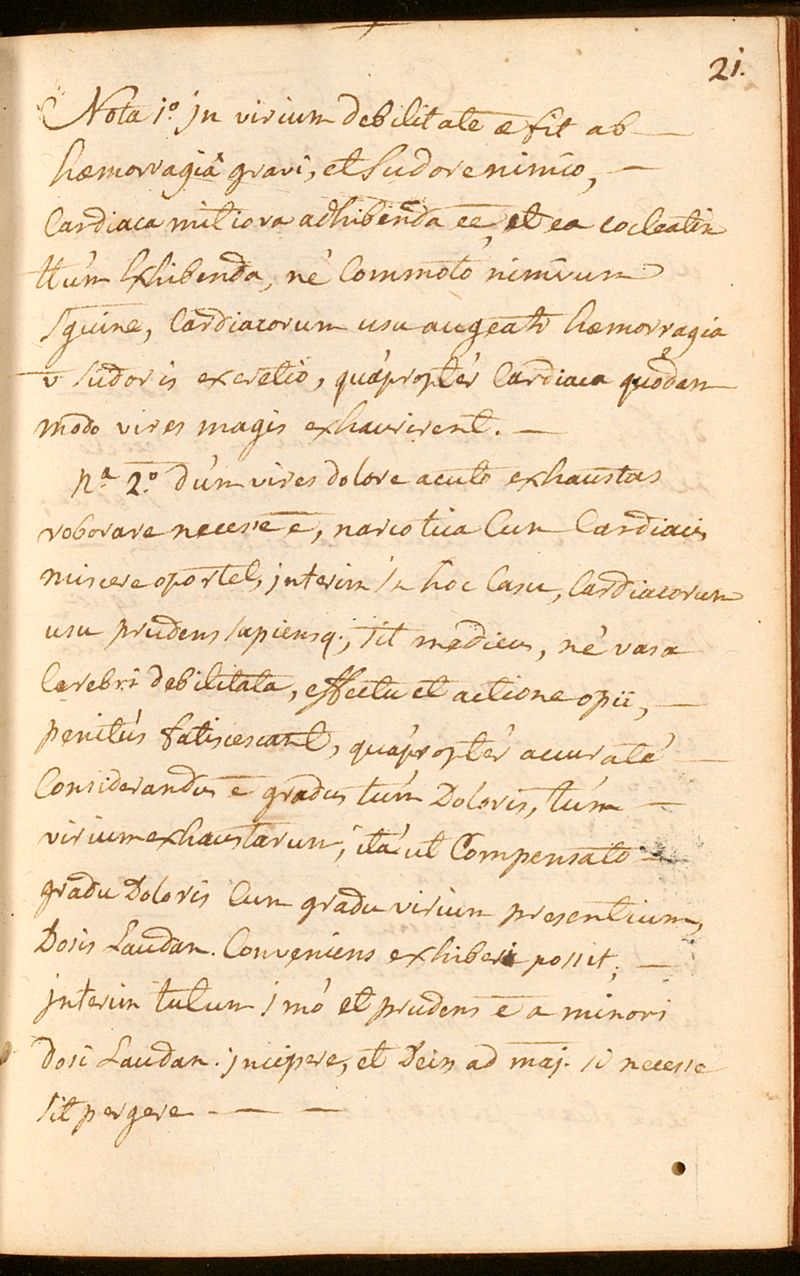 21.
Nota 1º jn virium debilitate æ fit ab —
hæmorragiâ gravi, et Sudore nimio, —
Cardiaca mitiora adhibenda ēē, et ea cocleatim
ttúm Exhibenda, né Commoto nimium
Sguine, Cardiacorum usu augeatr hæmorragia
v Sudoris excretio, quáproptér Cardiaca quodam
modo vires magis exhaurirent. —
Nª 2º dúm vires dolore acuto exhaustas
roborare necesse ē, narcotica Cum Cardiacis
miscere oportet, jnterim jn hoc Casu, Cardiacorum
usu prudens sapiensq;, sit medicus, né vasa
Cerebri debilitata, effectu et actione opii, —
penitús fatiscescant, quápropter accuraté —
Considerandus ē gradus túm Doloris, túm —
virium exhaustarum, itá ut Compensato —
gradu Doloris Cum gradu virium presentium,
Dosis Laudan. Conveniens exhiberi possit; —
jnterim tutum jmó et prudens ē a minori
dosi Laudan. jncipere, et Dein ad maj. si necesse
sit pergere — — —